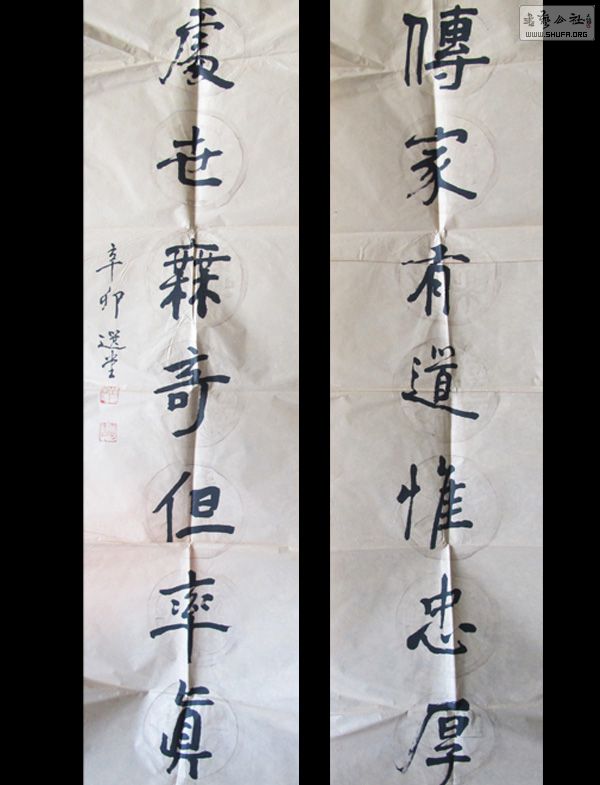 傳家有道惟忠厚
處世無奇但率眞
辛卯 選堂
書藝公社
WWW.SHUFA.ORG